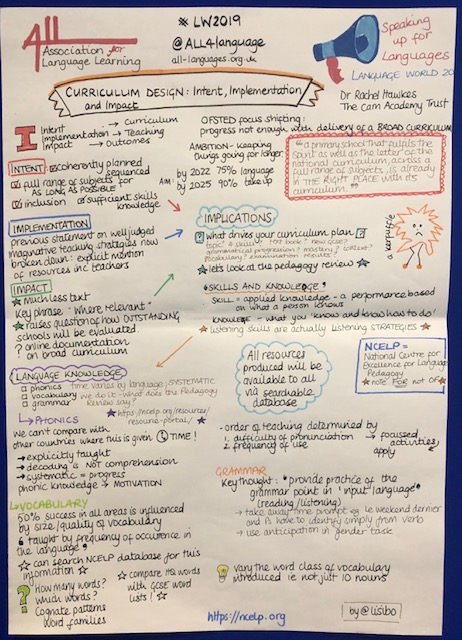 All
Association for
Language Learning
# LW2019
@ALL4language
all-languages.org.uk
Speaking
up for
Languages
LANGUAGE WORLD 20
Dr Rachel Hawkes
The Cam Academy Trust
CURRICULUM DESIGN: Intent, Implementation
and Impact
I
Intent → curriculum
Implementation → Teaching
Impact → outcomes
OFSTED focus shifting:
progress not enough with delivery of a BROAD CURRICULUM
AMBITION - keeping
things going for longer.
AIM:
by 2022 75% language
by 2025 90% take up
"a primary school that fulfils the
spirit as well as the letter of the
national curriculum, across a
full range of subjects, is already
in THE RIGHT PLACE with its
curriculum."
INTENT: coherently planned
sequenced
full range of subjects for
AS LONG AS POSSIBLE
inclusion sufficient skills
knowledge
IMPLEMENTATION
previous statement on well judged
imaginative teaching strategies now
broken down: explicit mention
of resources inc teachers
IMPACT
much less text
Key phrase "where relevant"
raises question of how OUTSTANDING
schools will be evaluated
? online documentation
on broad curriculum
IMPLICATIONS
? what drives your curriculum plan ?
topic? 4 skills? text book? new GCSE?
grammatical progression? mastery? context?
vocabulary? examination results?
let's look at the pedagogy review
a kerfuffle
"SKILLS AND KNOWLEDGE"
SKILL = applied knowledge - a performance based
on what a person knows
KNOWLEDGE - what you 'know and know how to do'!
listening skills are actually listening STRATEGIES
LANGUAGE KNOWLEDGE
phonics
vocabulary
grammar
time varies by language; SYSTEMATIC
we do it - what does the Pedagogy
Review say?
https://ncelp.org/resources/
resource-portal/
All resources
produced will be
available to all
via searchable
database
NCELP =
National Centre for
Excellence for Language
Pedagogy
note FOR not OF
PHONICS
We can't compare with
other countries where this is given TIME!
→ explicitly taught
→ decoding is NOT comprehension
→ systematic = progress
phonic knowledge → MOTIVATION
- order of teaching determined by
1. difficulty of pronunciation
2. frequency of use
→ focussed
activities
apply
GRAMMAR
Key thought: "provide practice of the
grammar point in 'input language'
(reading/listening)
→ take away time prompt eg le weekend dernier
and Ps have to identify simply from verb
→ use anticipation in gender task
VOCABULARY
50% success in all areas is influenced
by size/quality of vocabulary
"taught by frequency of occurence in
the language"
can search NCELP database for this
information
? How many words?
which words?
Cognate patterns
Word families
compare HQ words
with GCSE word
lists!
vary the word class of vocabulary
introduced ie not just 10 nouns
https://ncelp.org
by @lisibo